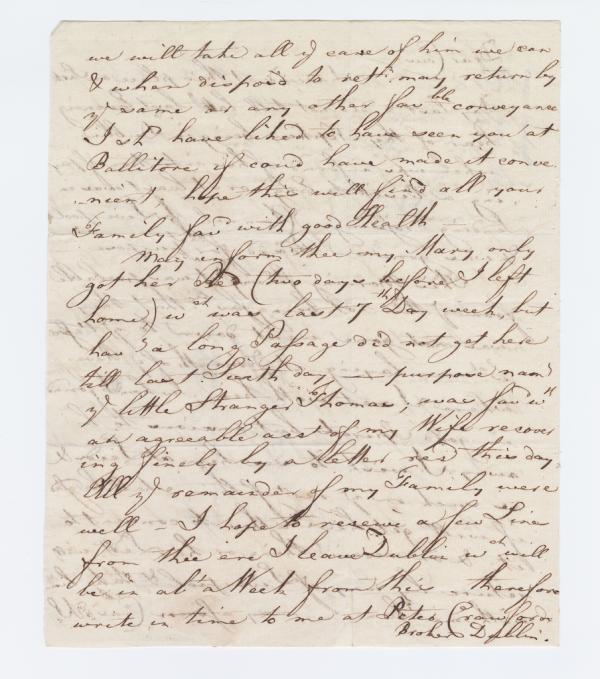 we will take all ye care of him we can
& when dispos'd to retn. may return by
ye same or any other favble conveyance
I shd have liked to have seen you at
Ballitore if coud have made it conve
nient, hope this will find all your
Family favd with good Health
May inform thee my Mary only
got her Bed (two days before I left
home,) wch was last 7th Day week, but
havg a long Passage did not get here
till last Sixth day, — purpose namg
ye little Stranger Thomas, was favd wth
an agreeable acct of my Wife recover
ing finely by a letter recd this day
All ye remainder of my Family were
well – I hope to receive a few Lines
from thee ere I leave Dublin wch will
be in abt a Week from this therefore
write in time to me at Peter Crawfords
Broker Dublin.